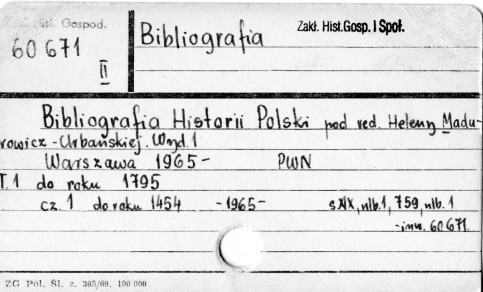 Hist. Gospod.
60 671
II
Bibliografia
Zakł. Hist.Gosp. i Społ.
Bibliografia Historii Polski pod red. Heleny Madu-
rowicz-Urbańskiej. Wyd. 1
Warszawa 1965- PWN
T. 1 do roku 1795
cz. 1 do roku 1454 -1965- nlb.1, 759, nlb. 1
-inw. 60671.
ZG Pol. Śl. z. 365/69. 100 000